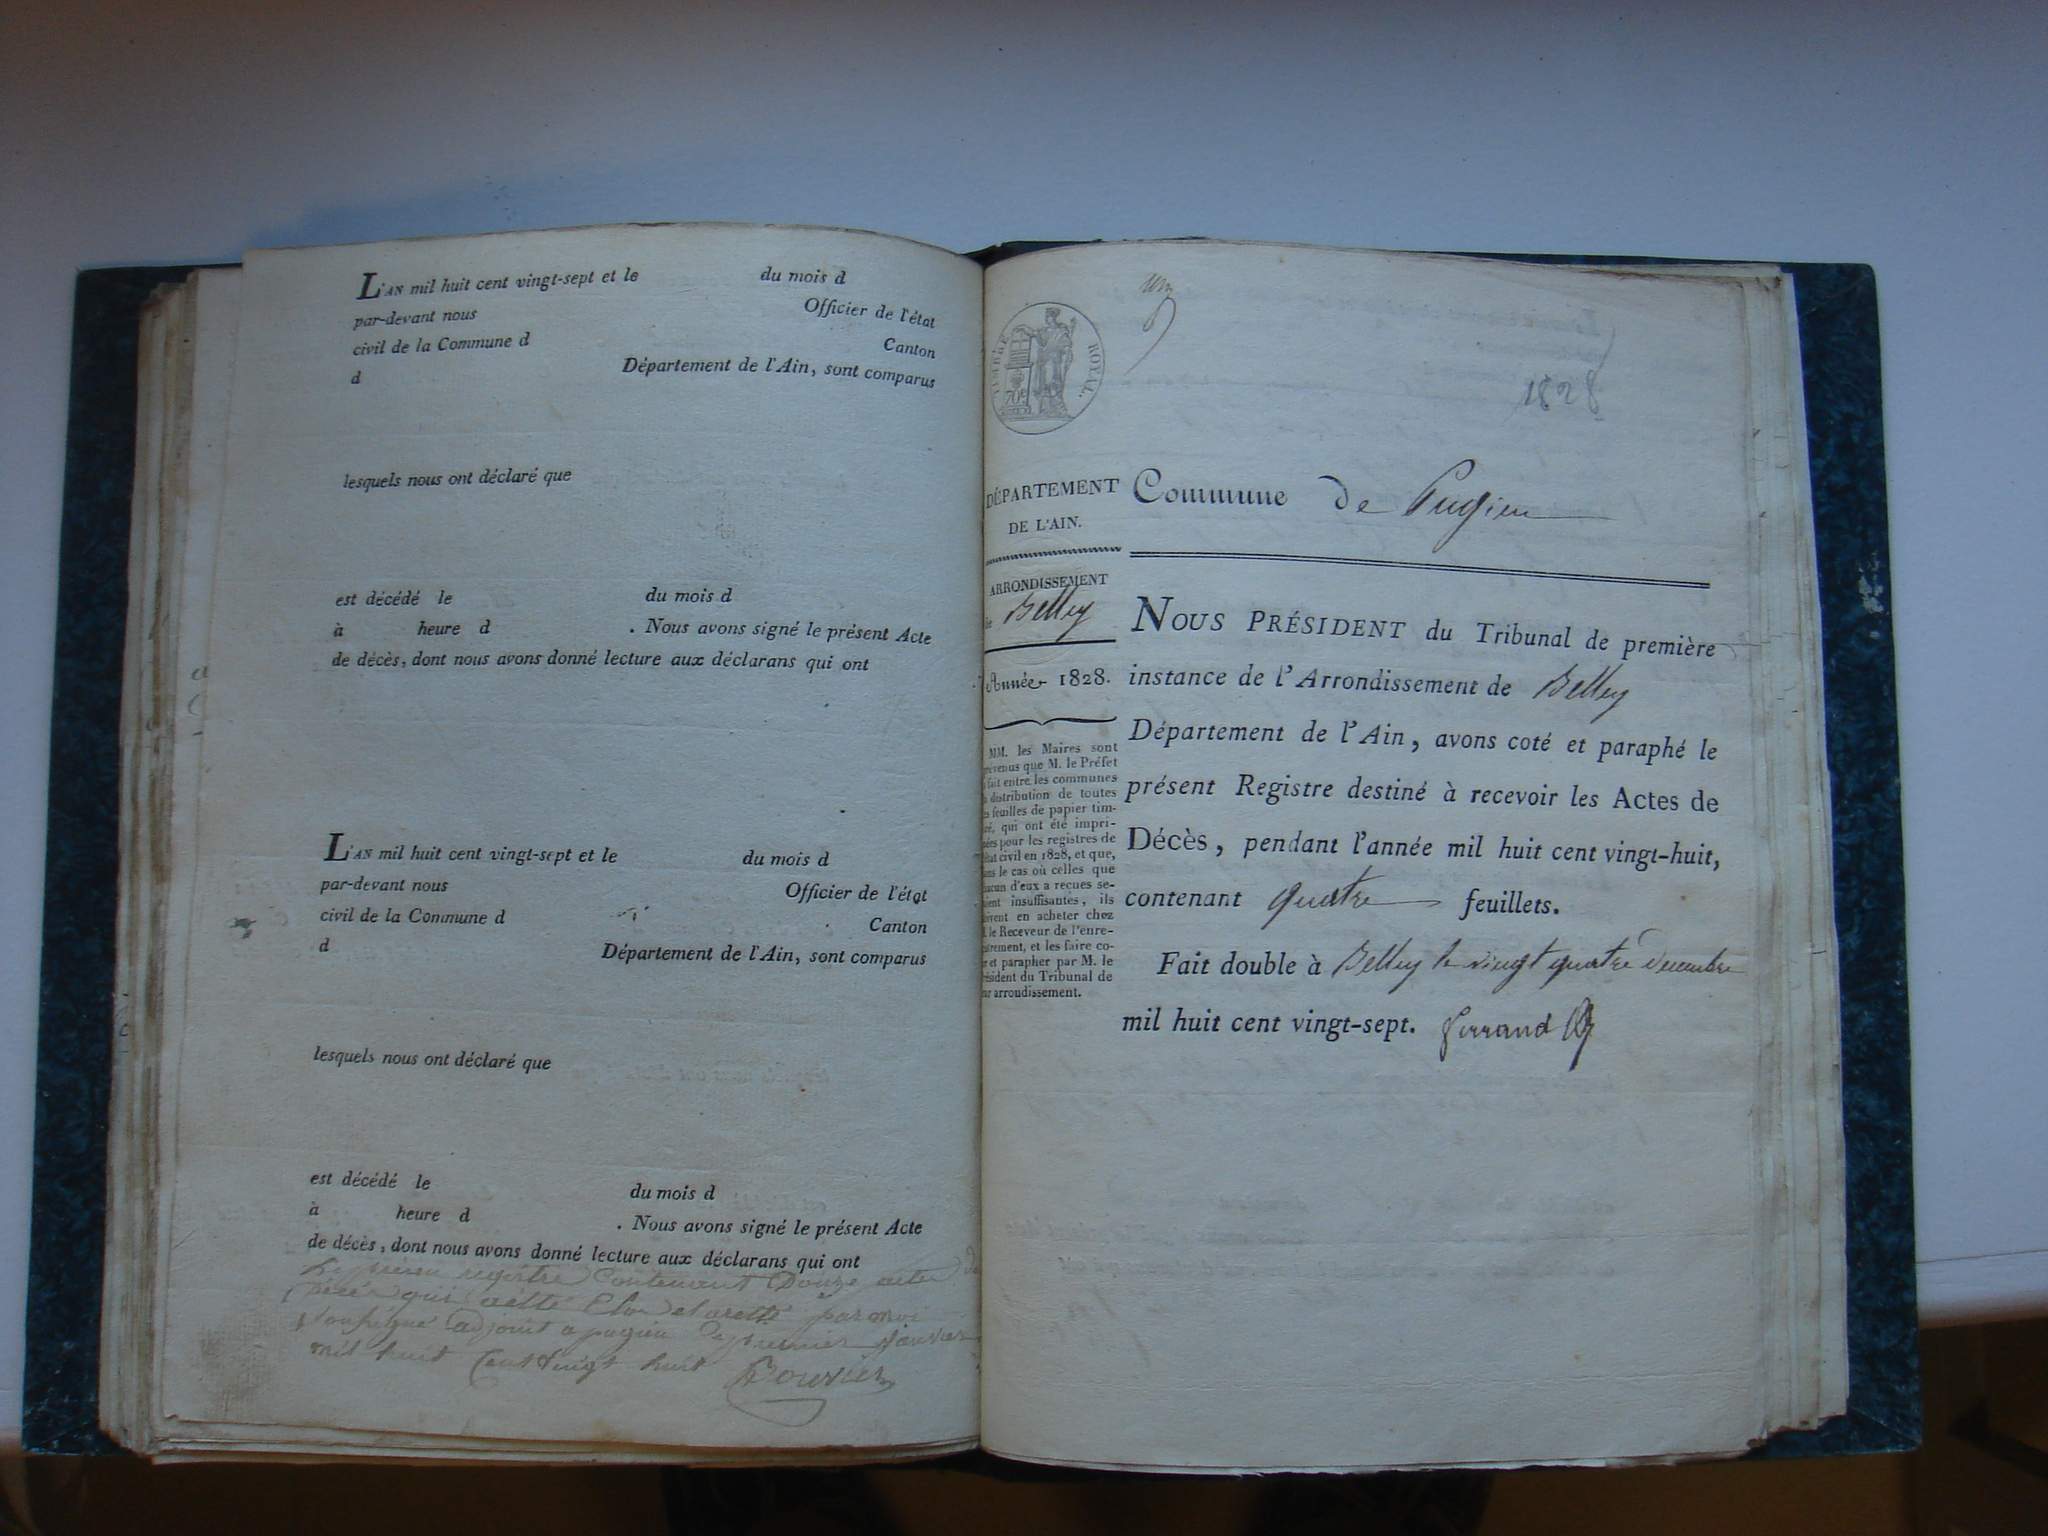 L'AN mil huit cent vingt-sept et le du mois d
par-devant nous Officier de l'état
civil de la Commune d Canton
d Département de l'Ain, sont comparus
lesquels nous ont déclaré que
est décédé le du mois d
à heure d . Nous avons signé le présent Acte
de décès, dont nous avons donné lecture aux déclarans qui ont
L'AN mil huit cent vingt-sept et le du mois d
par-devant nous Officier de l'état
civil de la Commune d Canton
d Département de l'Ain, sont comparus
lesquels nous ont déclaré que
est décédé le du mois d
à heure d . Nous avons signé le présent Acte
de décès, dont nous avons donné lecture aux déclarans qui ont
registre contenant Douze actes de
qui a été Clou et aretté par moi
adjoint a pugieu le premier Janvier
mil huit Cent vingt huit Bouvier
TIMBRE ROYAL.
70c
1828
DÉPARTEMENT
DE L'AIN.
ARRONDISSEMENT
de Belley
Année 1828.
MM. les Maires sont
prévenus que M. le Préfet
a fait entre les communes
la distribution de toutes
les feuilles de papier tim-
bré, qui ont été impri-
mées pour les registres de
l'état civil en 1828, et que,
dans le cas où celles que
chacun d'eux a reçues se-
raient insuffisantes, ils
doivent en acheter chez
M. le Receveur de l'enre-
gistrement, et les faire co-
ter et parapher par M. le
Président du Tribunal de
leur arrondissement.
Commune de Pugieu
NOUS PRÉSIDENT du Tribunal de première
instance de l'Arrondissement de Belley
Département de l'Ain, avons coté et paraphé le
présent Registre destiné à recevoir les Actes de
Décès, pendant l'année mil huit cent vingt-huit,
contenant quatre feuillets.
Fait double à Belley le vingt quatre decembre
mil huit cent vingt-sept. ferrand